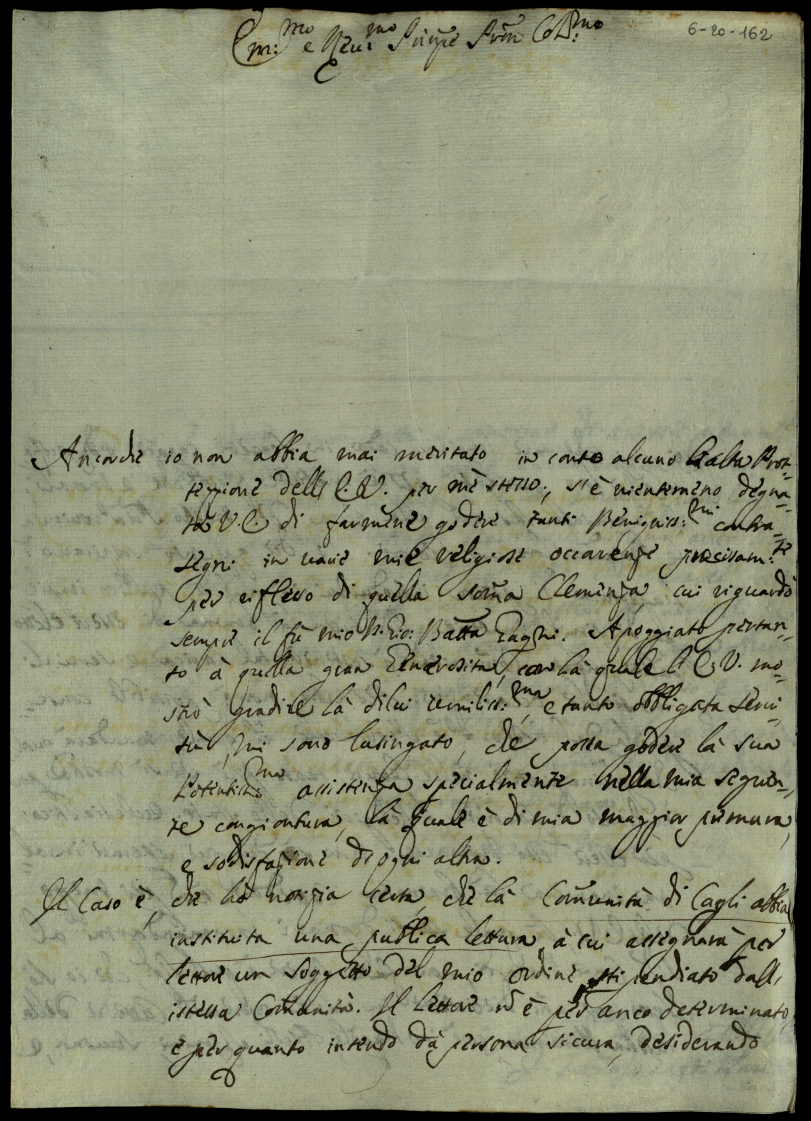 6-20-162
Em:mo e Rev:mo Princpe Pron Col:mo
Ancorche io non abbia mai meritato in conto alcuno l'alta Prot-
teggione dell' E.V. per mè stesso, s'è nientemeno degna-
ta V.E. di farmene godere tanti Benigniss:mi contra-
segni in varie mie religiose occorenze precisam:te
per riflesso di quella soma Clemenza, cui riguardò
sempre il fù mio Batta Zagni. Apoggiato pertan-
to à quella gran Generosità, con là quale l' E.V. mo-
strò gradire là dilui umiliss:ma, e tanto obbligata servi-
tù, mi sono lusingato, che possa godere là sua
Potentiss:ma assistenza specialmente nella mia seguen-
te congiontura, là quale è di mia maggior premura,
e sodisfazione di ogni altra.
Il Caso è, che hò notizia certa, che là Comunità di Cagli abbia
instituita una publica lettura, à cui assegnarà per
lettore un soggetto del mio ordine stipendiato dall'
istessa Comunità. Il lettore n è per anco determinato,
e per quanto intendo dà persona sicura, desiderando